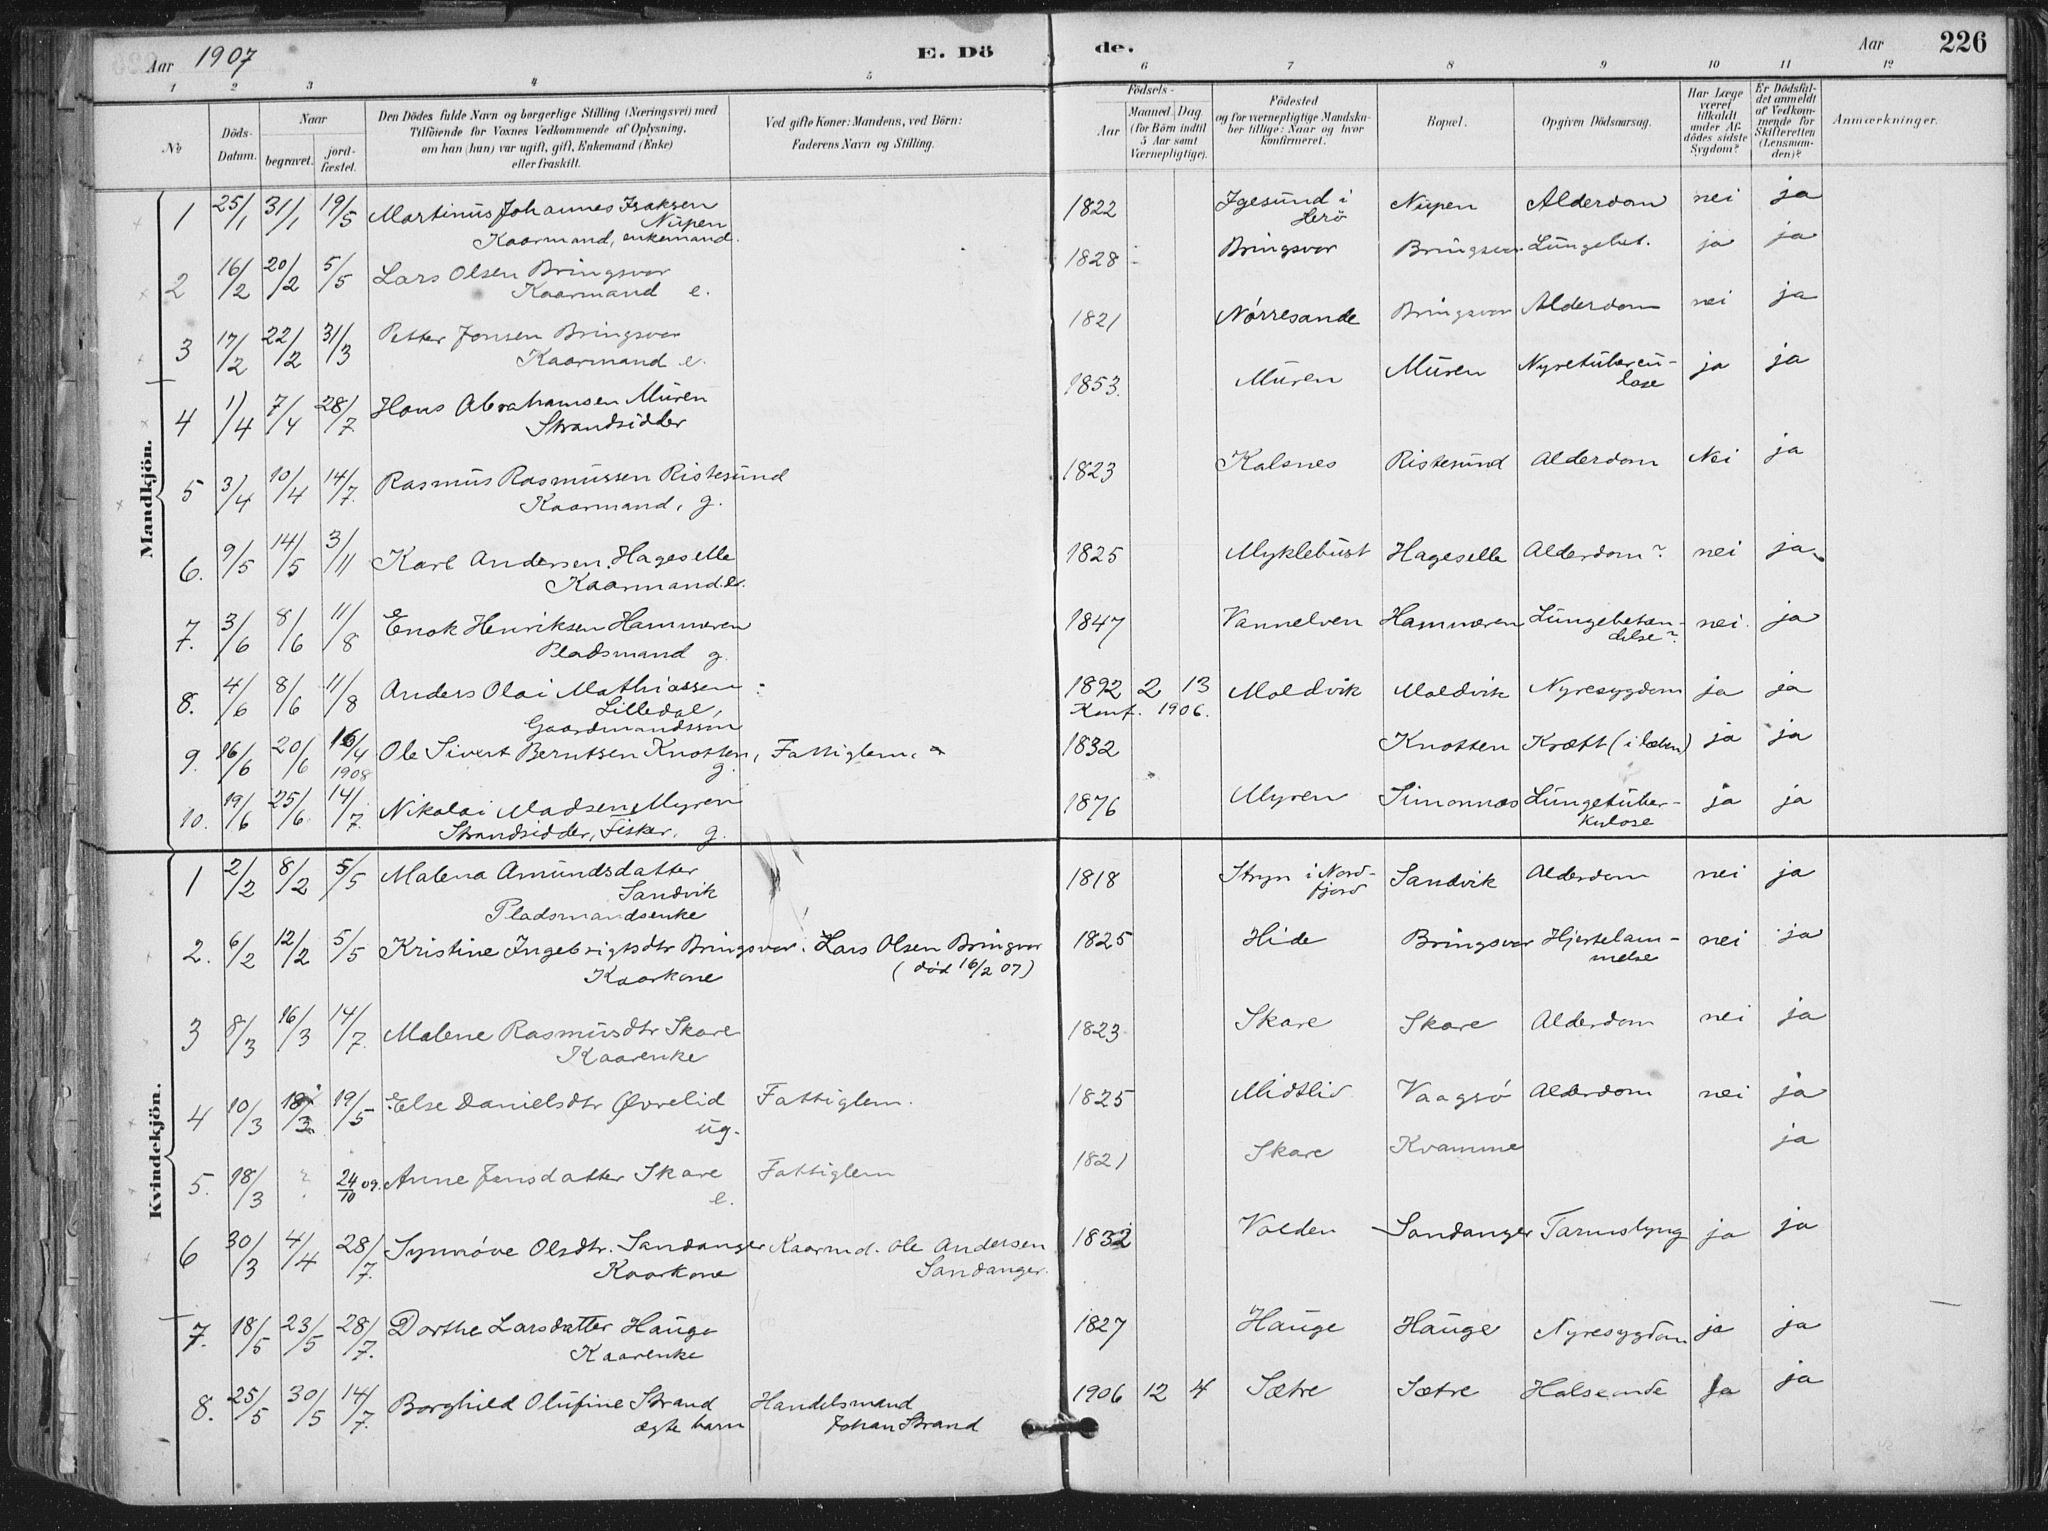 Aar 1907 E. Dö
de. Aar 226
1 2 3 4 5 6 7 8 9 10 11 12
No
Döds-Datum.
Naar
begravet.
jord-fæstet.
Den Dödes fulde Navn og borgerlige Stilling (Næringsvei) med
Tilföiende for Voxnes Vedkommende af Oplysning,
om han (hun) var ugift, gift, Enkemand (Enke)
eller fraskilt.
Ved gifte Koner: Mandens, ved Börn:
Faderens Navn og Stilling.
Födsels-
Aar
Maaned. Dag.
(for Börn indtil
5 Aar samt
Værnepligtige).
Födested
og for værnepligtige Mandska-
ber tillige: Naar og hvor
konfirmeret.
Bopæl.
Opgiven Dödsaarsag.
Har Læge
været
tilkaldt
under Af-
dödes sidste
Sygdom?
Er Dödsfal-
det anmeldt
af Vedkom-
mende for
Skifteretten
(Lensman-
den)?
Anmærkninger.
Mandkjön.
1 25/1 31/1 19/5 Martinus Johannes Isaksen 1822 Igesund i Nupen Alderdom nei ja
Nupen Herö
Kaarmand, enkemand.
2 16/2 20/2 5/5 Lars Olsen Bringsvor 1828 Bringsvor Bringsvor Lungebet. ja ja
Kaarmand e.
3 17/2 22/2 31/3 Petter Jonsen Bringsvor 1821 Nørresande Bringsvor Alderdom nei ja
Kaarmand e.
4 1/4 7/4 28/7 Hans Abrahamsen Muren 1853. Muren Muren Nyretubercu-
lose ja ja
Strandsidder
5 3/4 10/4 14/7. Rasmus Rasmussen Ristesund 1823 Kalsnes Ristesund Alderdom Nei ja
Kaarmand, g.
6. 9/5 14/5 3/11 Karl Andersen Hageselle 1825 Myklebust Hageselle Alderdom? nei ja
Kaarmand. e.
7. 3/6 8/6 11/8 Enok Henriksen Hamnæren 1847 Vannelven Hamnæren Lungebetæn-
delse? nei. ja
Pladsmand g.
8. 4/6 8/6 11/8 Anders Olai Mathiassen 1892 2 13 Moldvik Moldvik Nyresygdom ja ja
Lilledal, Konf. 1906.
Gaardmandssøn
9. 16/6 20/6 16/4 1908 Ole Sivert Berntsen Knotten, Fattiglem. 1832 Knotten Kræft (i læben) ja ja
g.
10. 19/6 25/6 14/7. Nikolai Madsen Myren 1876 Myren Simonnæs Lungetuber-
kulose ja ja
Strandsidder, Fisker, g.
Kvindekjön.
1 2/2 8/2 5/5 Malena Amundsdatter 1818 Stryn i Nord-
fjord Sandvik Alderdom nei ja
Sandvik
Pladsmandsenke
2. 6/2 12/2 5/5 Kristine Ingebrigtsdtr Bringsvor. Lars Olsen Bringsvor 1825 Hide Bringsvor Hjertelam-
melse nei ja
Kaarkone (død 16/2 07)
3 8/3 16/3 14/7. Malene Rasmusdtr Skare 1823 Skare Skare Alderdom nei ja
Kaarenke
4 10/3 18/3 19/5 Else Danielsdtr Øvrelid Fattiglem. 1825 Midtlid Vaagsö Alderdom nei ja
ug.
5. 18/3 ? 24/10 09. Anne Jensdatter Skare Fattiglem 1821 Skare Kvamme ja
e.
6 30/3 4/4 28/7. Synnøve Olsdtr. Sandanger Kaarmd. Ole Andersen 1832 Volden Sandanger Tarmslyng ja ja
Kaarkone Sandanger.
7. 18/5 23/5 28/7. Dorthe Larsdatter Hauge 1827 Hauge Hauge Nyresygdom ja ja
Kaarenke
8. 25/5 30/5 14/7. Borghild Olufine Strand Handelsmand 1906 12 4 Sætre Sætre Halsonde ja ja
ægte barn Johan Strand